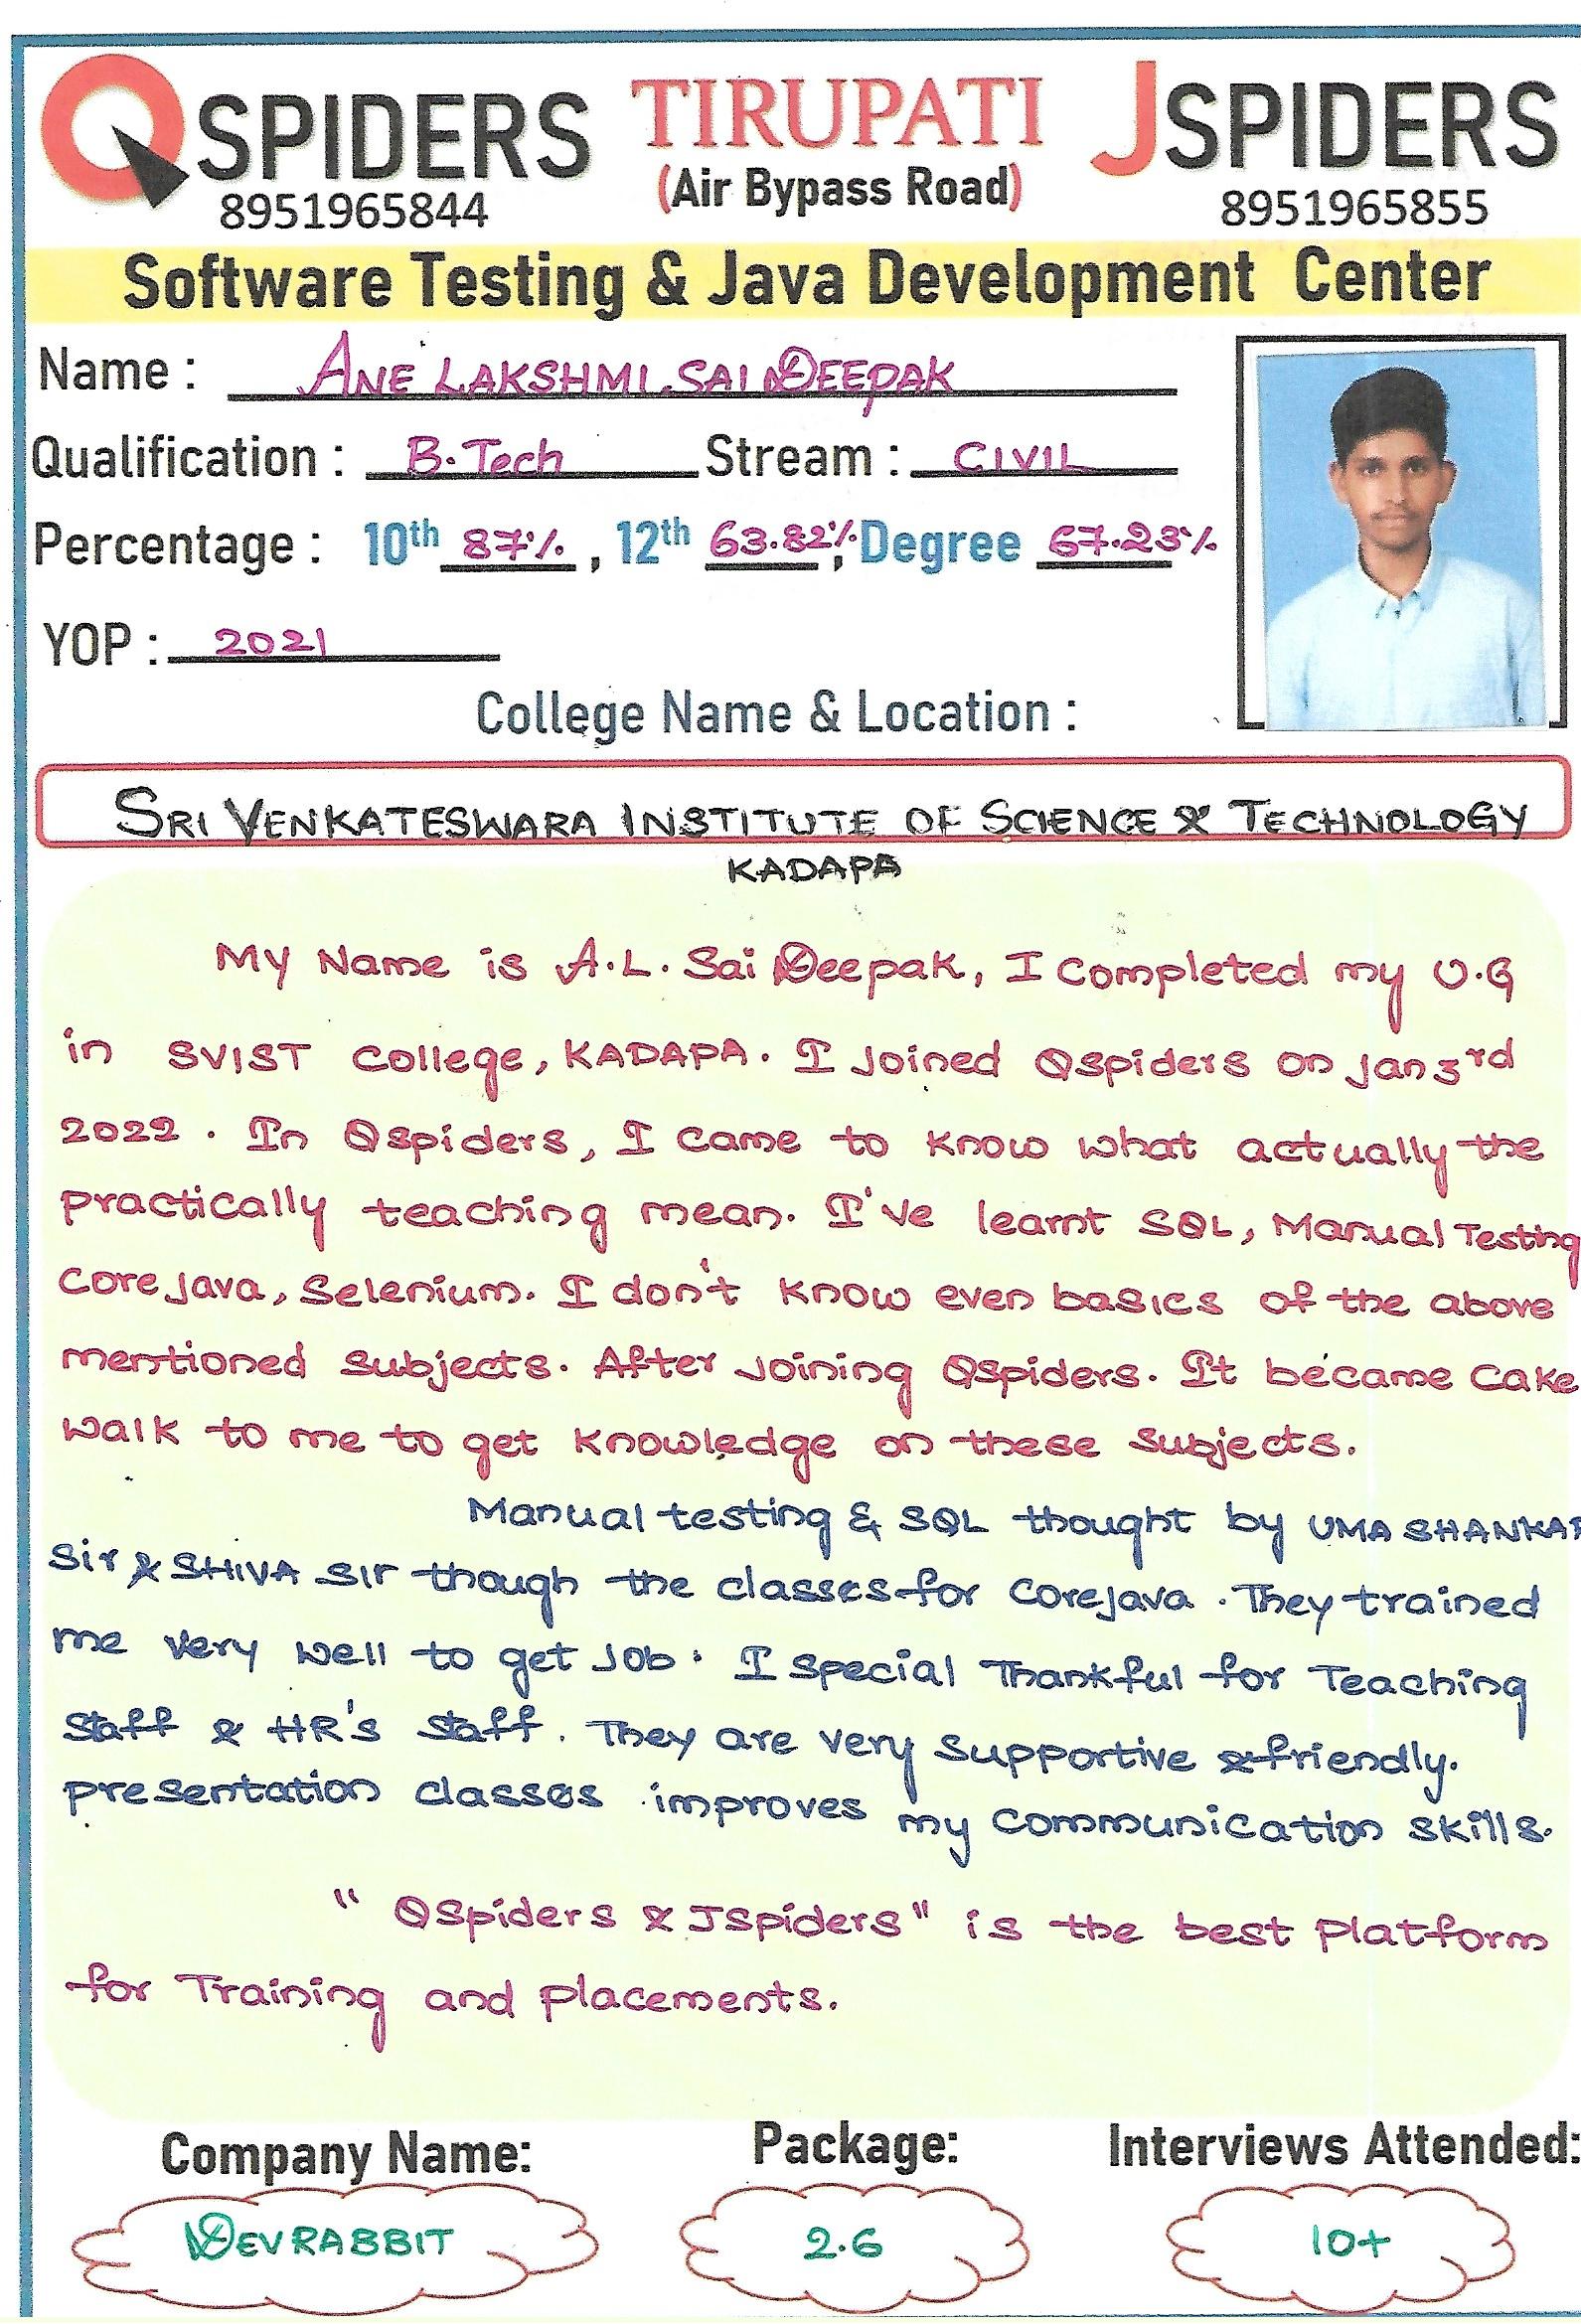 QSPIDERS TIRUPATI JSPIDERS
8951965844 (Air Bypass Road) 8951965855
Software Testing & Java Development Center
Name : ANE LAKSHMI SAI DEEPAK
Qualification : B.Tech Stream : CIVIL
Percentage : 10th 87% , 12th 63.82% , Degree 67.23%
YOP : 2021
College Name & Location :
SRI VENKATESWARA INSTITUTE OF SCIENCE & TECHNOLOGY
KADAPA
My Name is A.L. Sai Deepak, I completed my U.G
in SVIST College, KADAPA. I Joined Qspiders on Jan 3rd
2022. In Qspiders, I came to know what actually the
practically teaching mean. I've learnt SQL, Manual Testing
Core Java, Selenium. I don't know even basics of the above
mentioned subjects. After Joining Qspiders. It became cake
walk to me to get knowledge on these subjects.
Manual testing & SQL thought by UMA SHANKAR
Sir & SHIVA SIR though the classes for Corejava. They trained
me very well to get Job. I special Thankful for Teaching
staff & HR's staff. They are very supportive & friendly.
presentation classes improves my communication skills.
" QSpiders & JSpiders" is the best platform
for Training and placements.
Company Name: Package: Interviews Attended:
DEVRABBIT 2.6 10+